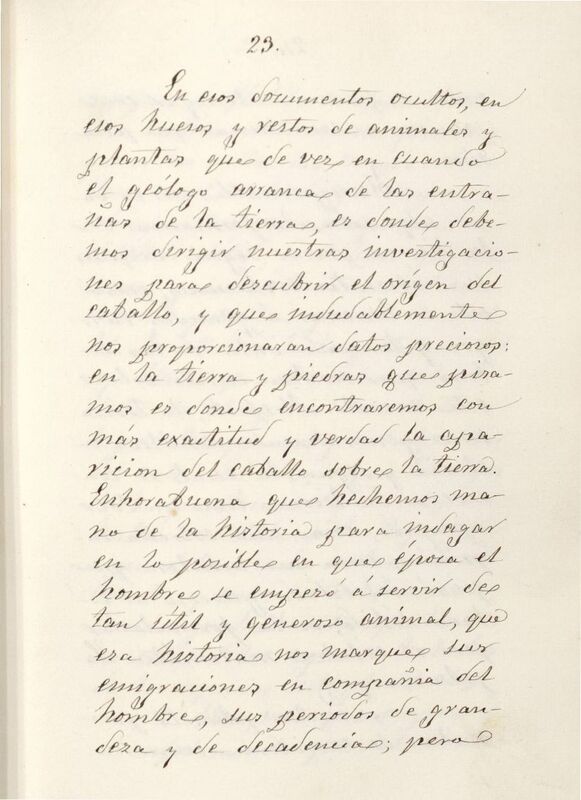 23.
En esos documentos ocultos, en
esos huesos y restos de animales y
plantas que de vez en cuando
el geólogo arranca de las entra-
ñas de la tierra, es donde debe-
mos dirigir nuestras investigacio-
nes para descubrir el orígen del
caballo, y que indudablemente
nos proporcionaran datos preciosos:
en la tierra y piedras que pisa-
mos es donde encontraremos con
más exactitud y verdad la apa-
ricion del caballo sobre la tierra.
Enhorabuena que hechemos ma-
no de la historia para indagar
en lo posible en que época el
hombre se empezó á servir de
tan útil y generoso animal, que
esa historia nos marque sus
emigraciones en compañia del
hombre, sus periodos de gran-
deza y de decadencia; pero